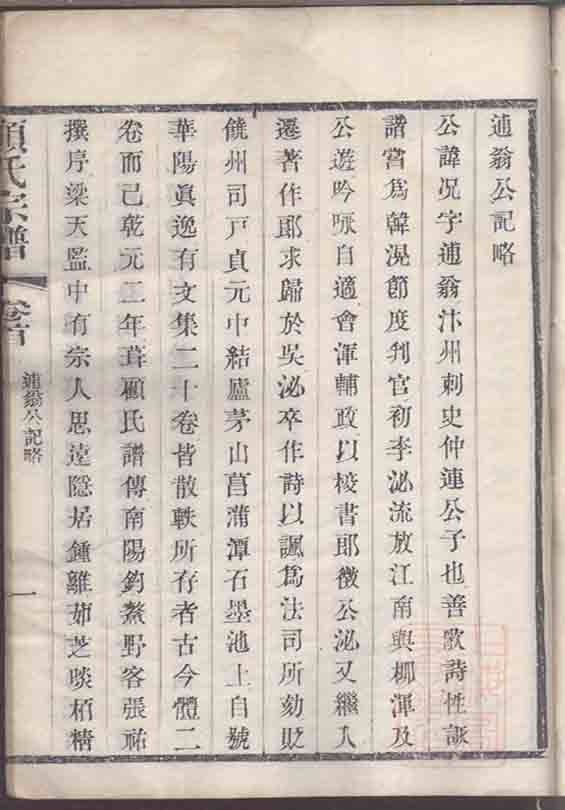 逋翁公記略
公諱况字逋翁汴州刺史仲連公子也善歌詩性詼
諧嘗爲韓滉節度判官初李泌流放江南與柳渾及
公遊吟咏自適會渾輔政以校書郎徵公泌又繼入
遷著作郎求歸於吳泌卒作詩以諷爲法司所劾貶
饒州司戸貞元中結廬茅山菖蒲潭石墨池上自號
華陽眞逸有文集二十卷皆散軼所存者古今體二
卷而已乾元二年葺顧氏譜傳南陽釣鰲野客張祐
撰序梁天監中有宗人思遠隱居鍾離茹芝啖栢精
顧氏宗譜
卷首
逋翁公記略
一